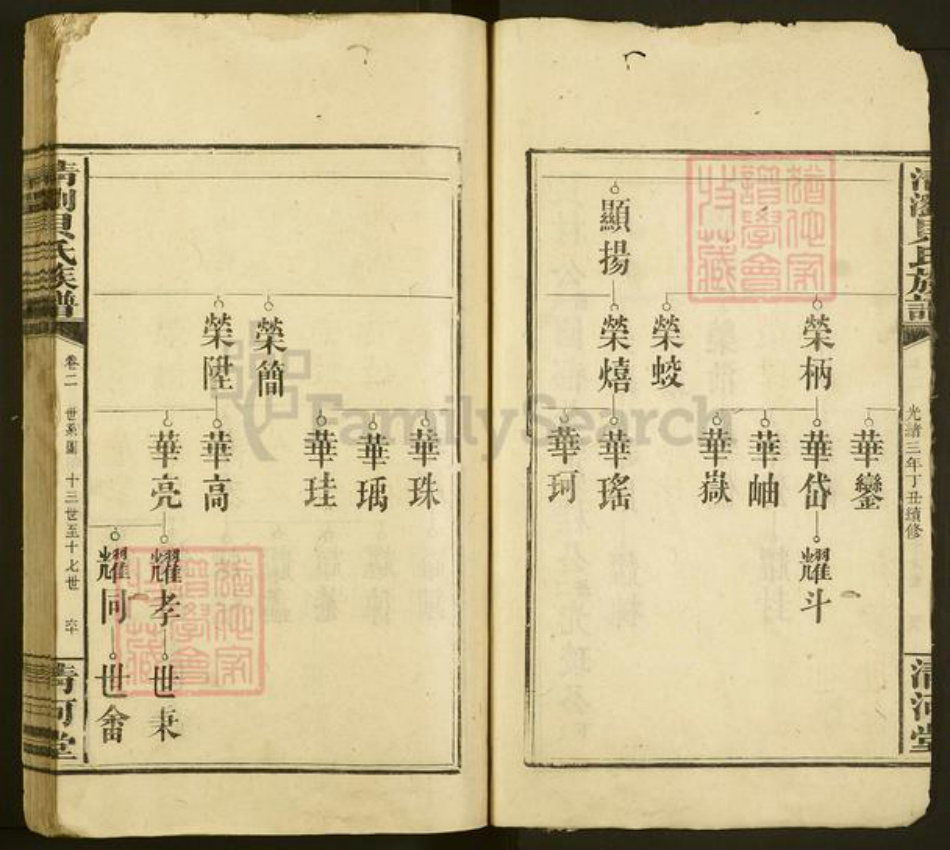 光緒三年丁丑續修
清河堂
顯揚
榮柄
榮蛟
榮熺
華鑾
華岱
華岫
華嶽
華瑤
華珂
耀斗
榮簡
榮陞
華珠
華瑀
華珪
華高
華亮
耀孝
耀同
世耒
世畬
族譜
卷二
世系圖
十三世至十七世
清河堂
FamilySearch